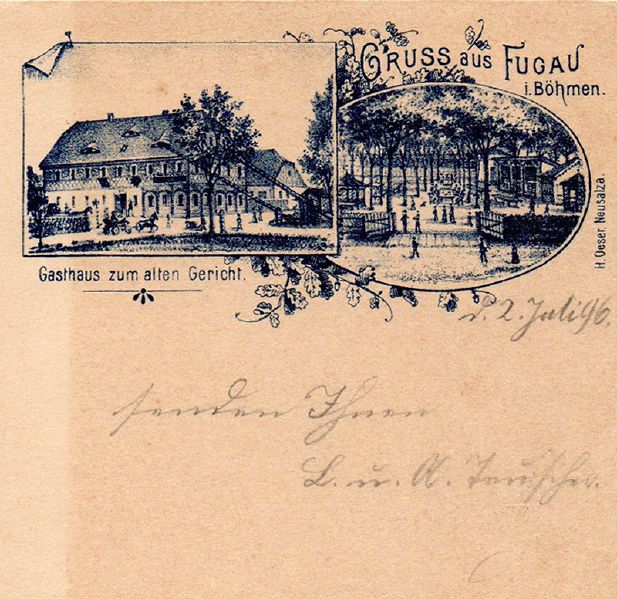 GRUSS aus FUGAU
i. Böhmen.
H. Oeser Neusalza.
Gasthaus zum alten Gericht.
d. 2. Juli 96.
senden Ihnen
L. u. A.